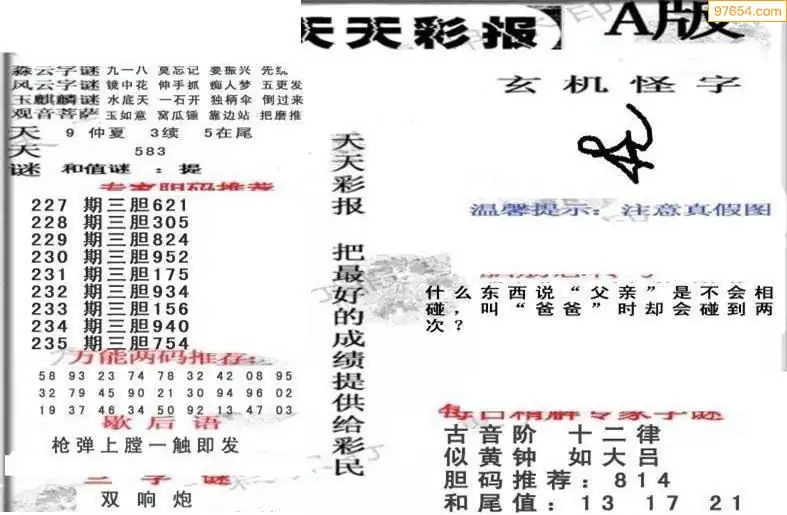 97654.com
天天彩报】 A版
森云字谜 九一八 莫忘记 要振兴 先
风云字谜 镜中花 伸手抓 痴人梦 五更发
玉麒麟谜 水底天 一石开 独柄伞 倒过来
观音菩萨 玉如意 窝瓜锤 靠边站 把磨推
天 9 仲夏 3续 5在尾
天 583
谜 和值谜 :提
专家胆码推荐
227 期三胆621
228 期三胆305
229 期三胆824
230 期三胆952
231 期三胆175
232 期三胆934
233 期三胆156
234 期三胆940
235 期三胆754
万能两码推荐:
58 93 23 74 78 32 42 08 95
32 79 45 90 21 30 94 96 02
19 37 46 34 50 92 13 47 03
歇后语
枪弹上膛一触即发
三字谜
双响炮
天天彩报 把最好的成绩提供给彩民
玄机怪字
温馨提示: 注意真假图
什么东西说“父亲”是不会相
碰,叫“爸爸”时却会碰到两
次?
每日精解专家字谜
古音阶 十二律
似黄钟 如大吕
胆码推荐:814
和尾值:13 17 21